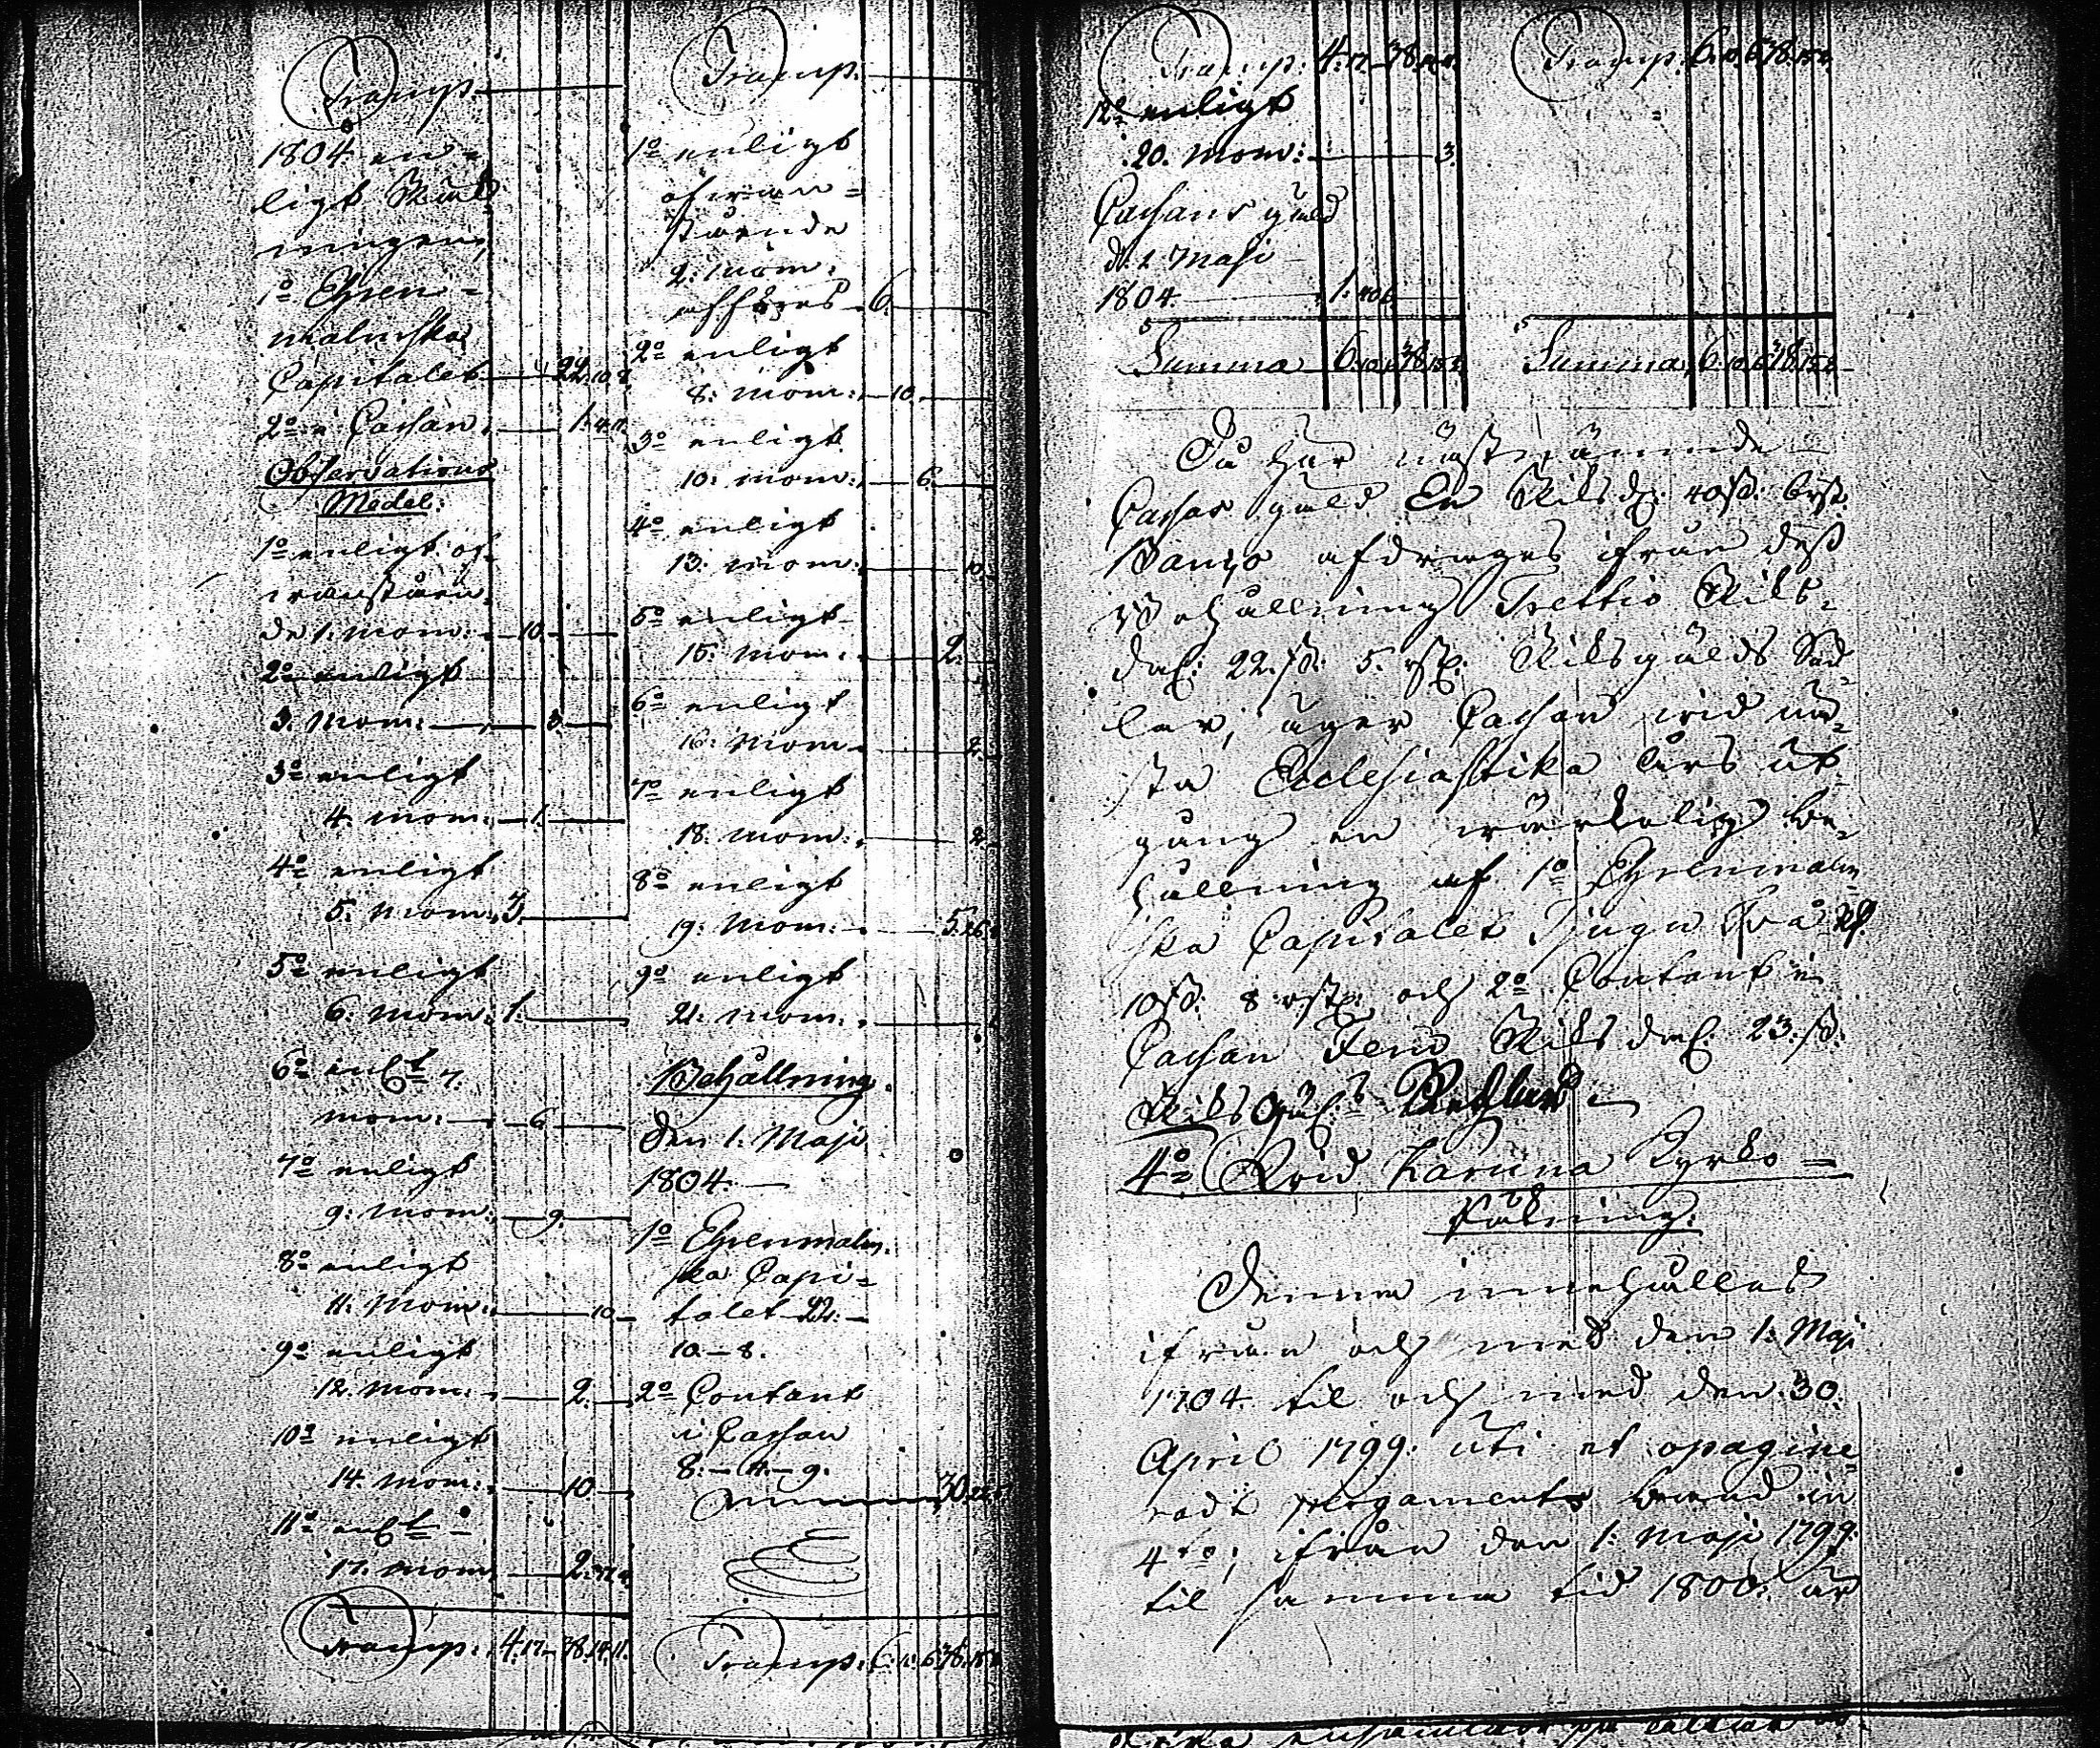 Transp.
1804 en=
ligt Räk=
ningen,
1o Ehren=
malmska
Capitalet 22. 10. 8.
2o i Cassan 1. 4. 11.
Observations
Medel:
1o enligt of=
vanståen=
de 1. mom: 10.
2o enligt
3. mom: 8.
3o enligt
4. mom: 1.
4o enligt
5. mom: 3.
5o enligt
6. mom: 1.
6o enl:t 7.
mom: 6
7o enligt
9. mom: 9.
8o enligt
11. mom: 10
9o enligt
12. mom: 2.
10o enligt
14. mom: 10.
11o enl:t
17. mom: 2.
Transp: 4. 17. 38. 14. 11.
Transp.
1o enligt
ofvan=
stående
2. mom:
afföres 6.
2o enligt
8. mom: 10.
3o enligt
10. mom: 6.
4o enligt
13. mom: 10.
5o enligt
15. mom: 2.
6o enligt
16. mom 2.
7o enligt
18. mom: 2.
8o enligt
19. mom: 5. 26.
9o enligt
21. mom:
Behållning
den 1. Maji
1804.
1o Ehrenmalm=
ska Capi=
talet 22.
10 – 8.
2o Contant
i Cassan
8. – 11. – 9.
30. 22. 5.
Transp: 6. 10. 6. 38. 15. 2.
Transp: 4. 17. 38. 14. 11.
12o enligt
20. mom: 3.
Cassans gäld
d. 1 Maji
1804. 1. 40. 6.
Summa 6. 10. 6. 38. 15. 2.
Transp. 6. 10. 6. 38. 15. 2.
Summa, 6. 10. 6. 38. 15. 2.
Då här näst nämnde
Cassas gäld En Riksd. 40 sk: 6 rst.
Banco afdrages ifrån dess
Behållning Trettio Riks=
dal: 22. sk: 5. rst: Riksgälds Sed=
lar, äger Cassan vid nä=
sta Ecclesiastika års ut=
gång en wärkelig be=
hållning af 1o Ehrenmalm=
ska Capitalet Tjugu Två Rd.
10 sk: 8 rst: och 2o Contant i
Cassan Fem Riksdal: 23. sk:
Riks Gäl:s
4o Wid Karuna Kyrko=
räkning:
Denne innehålles
ifrån och med den 1. Maji
1704. til och med den 30.
April 1799. uti et opagine=
radt pergaments band in
4to, ifrån den 1. Maji 1799.
til samma tid 1800. är